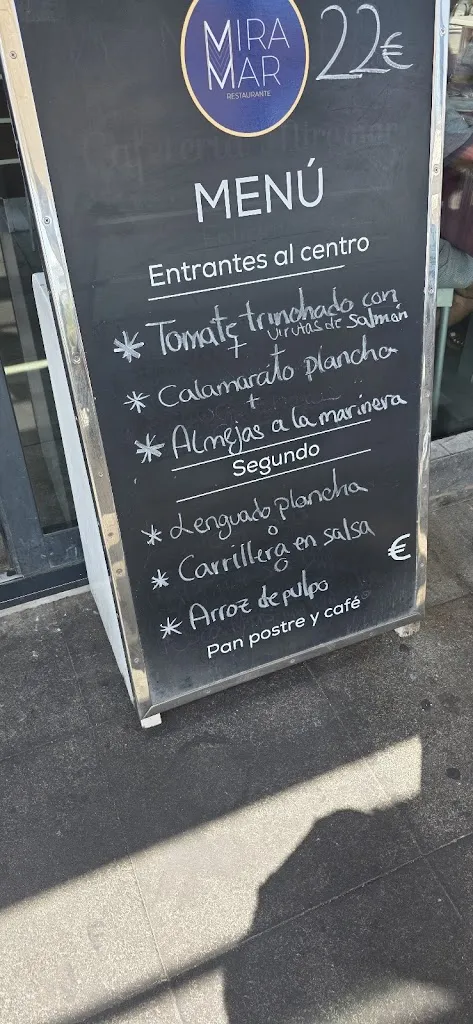 MIRA
MAR
RESTAURANTE
22€
Cafetería Miramar
MENÚ
Entrantes al centro
* Tomate trinchado con
+ virutas de salmón
* Calamarato plancha
+
* Almejas a la marinera
Segundo
* Lenguado plancha
o
* Carrillera en salsa
o
€
* Arroz de pulpo
Pan postre y café